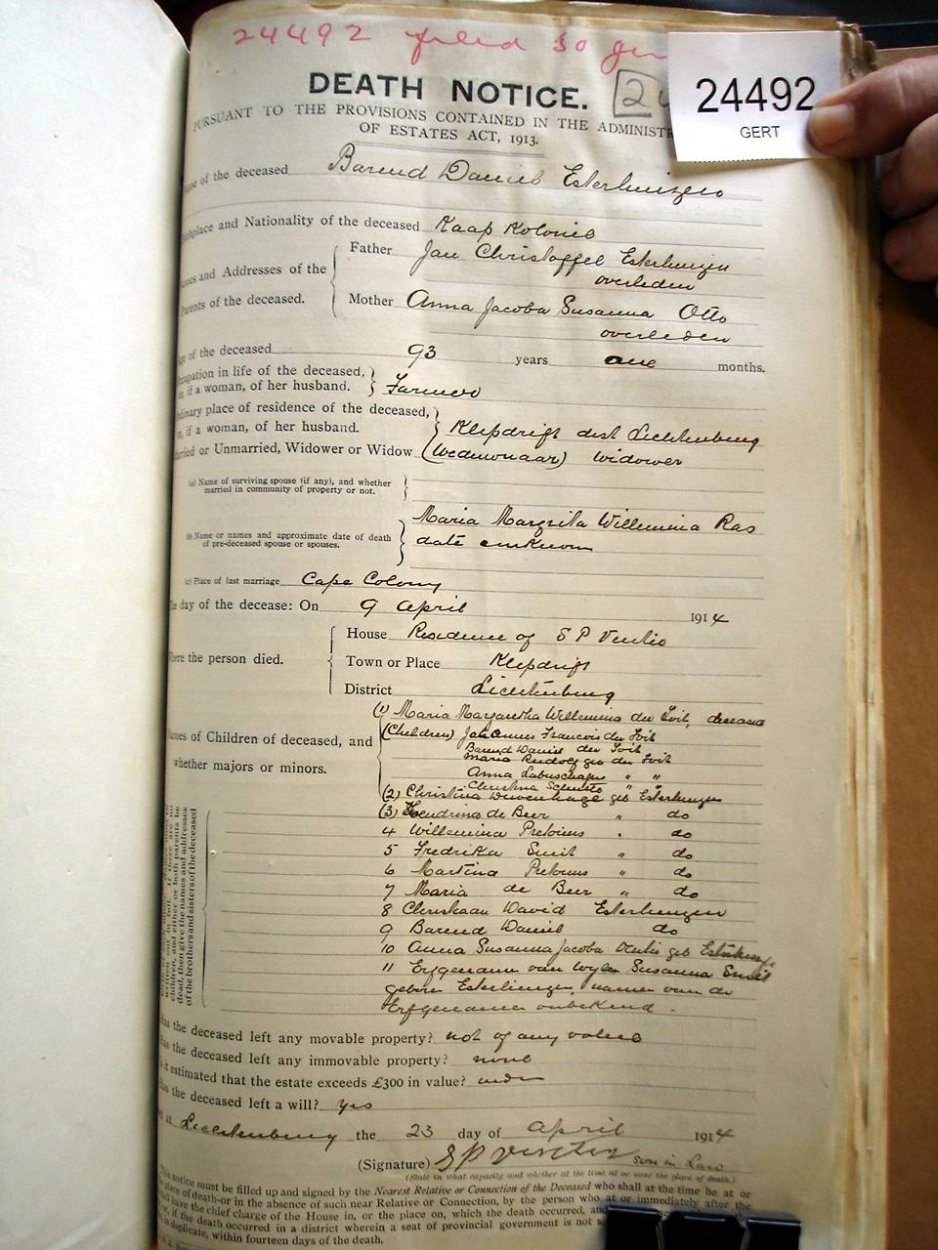 24492 filed 30
24492
GERT
DEATH NOTICE.
PURSUANT TO THE PROVISIONS CONTAINED IN THE ADMINISTR
OF ESTATES ACT, 1913.
of the deceased Barend Daniel Esterhuizen
place and Nationality of the deceased Kaap Kolonie
Names and Addresses of the Parents of the deceased.
Father Jan Christoffel Esterhuizen
overleden
Mother Anna Jacoba Susanna Otto
overleden
of the deceased 93 years one months.
occupation in life of the deceased, or, if a woman, of her husband. Farmer
Ordinary place of residence of the deceased, or, if a woman, of her husband. Klipdrift dist Lichtenburg
Married or Unmarried, Widower or Widow (Wedewenaar) Widower
(a) Name of surviving spouse (if any), and whether
married in community of property or not.
(b) Name or names and approximate date of death
of pre-deceased spouse or spouses.
Maria Margrita Willemina Ras
date unknown
(c) Place of last marriage Cape Colony
The day of the decease: On 9 April 1914
Where the person died.
House Residence of S P Venter
Town or Place Klipdrift
District Lichtenburg
Names of Children of deceased, and
whether majors or minors.
(1) Maria Margaretha Willemina du Toit, deceased
(Children) Johannes Francois du Toit
Barend Daniel du Toit
Maria geb du Toit
Anna Labuschagne " "
Christina " "
(2) Christina geb Esterhuizen
(3) Hendrina de Beer " do
4 Willemina Pretorius " do
5 Fredrika Smit " do
6 Martina Pretorius " do
7 Maria de Beer " do
8 Christiaan David Esterhuizen
9 Barend Daniel do
10 Anna Susanna Jacoba Venter geb Esterhuizen
11 Erfgenamen van wylen Susanna Smit
geboren Esterhuizen, namen van de
Erfgenamen onbekend.
children, and either or both parents be
dead, then give the names and addresses
of the brothers and sisters of the deceased
Has the deceased left any movable property? not of any value
Has the deceased left any immovable property? none
is estimated that the estate exceeds £300 in value? under
Has the deceased left a will? yes
at Lichtenburg the 23 day of April 1914
(Signature) S P Venter son in Law
(State in what capacity and whether at the time at or near the place of death.)
This notice must be filled up and signed by the Nearest Relative or Connection of the Deceased who shall at the time be at or
place of death—or in the absence of such near Relative or Connection, by the person who at or immediately after the
have the chief charge of the House in, or the place on, which the death occurred, and
if the death occurred in a district wherein a seat of provincial government is not
in duplicate, within fourteen days of the death.